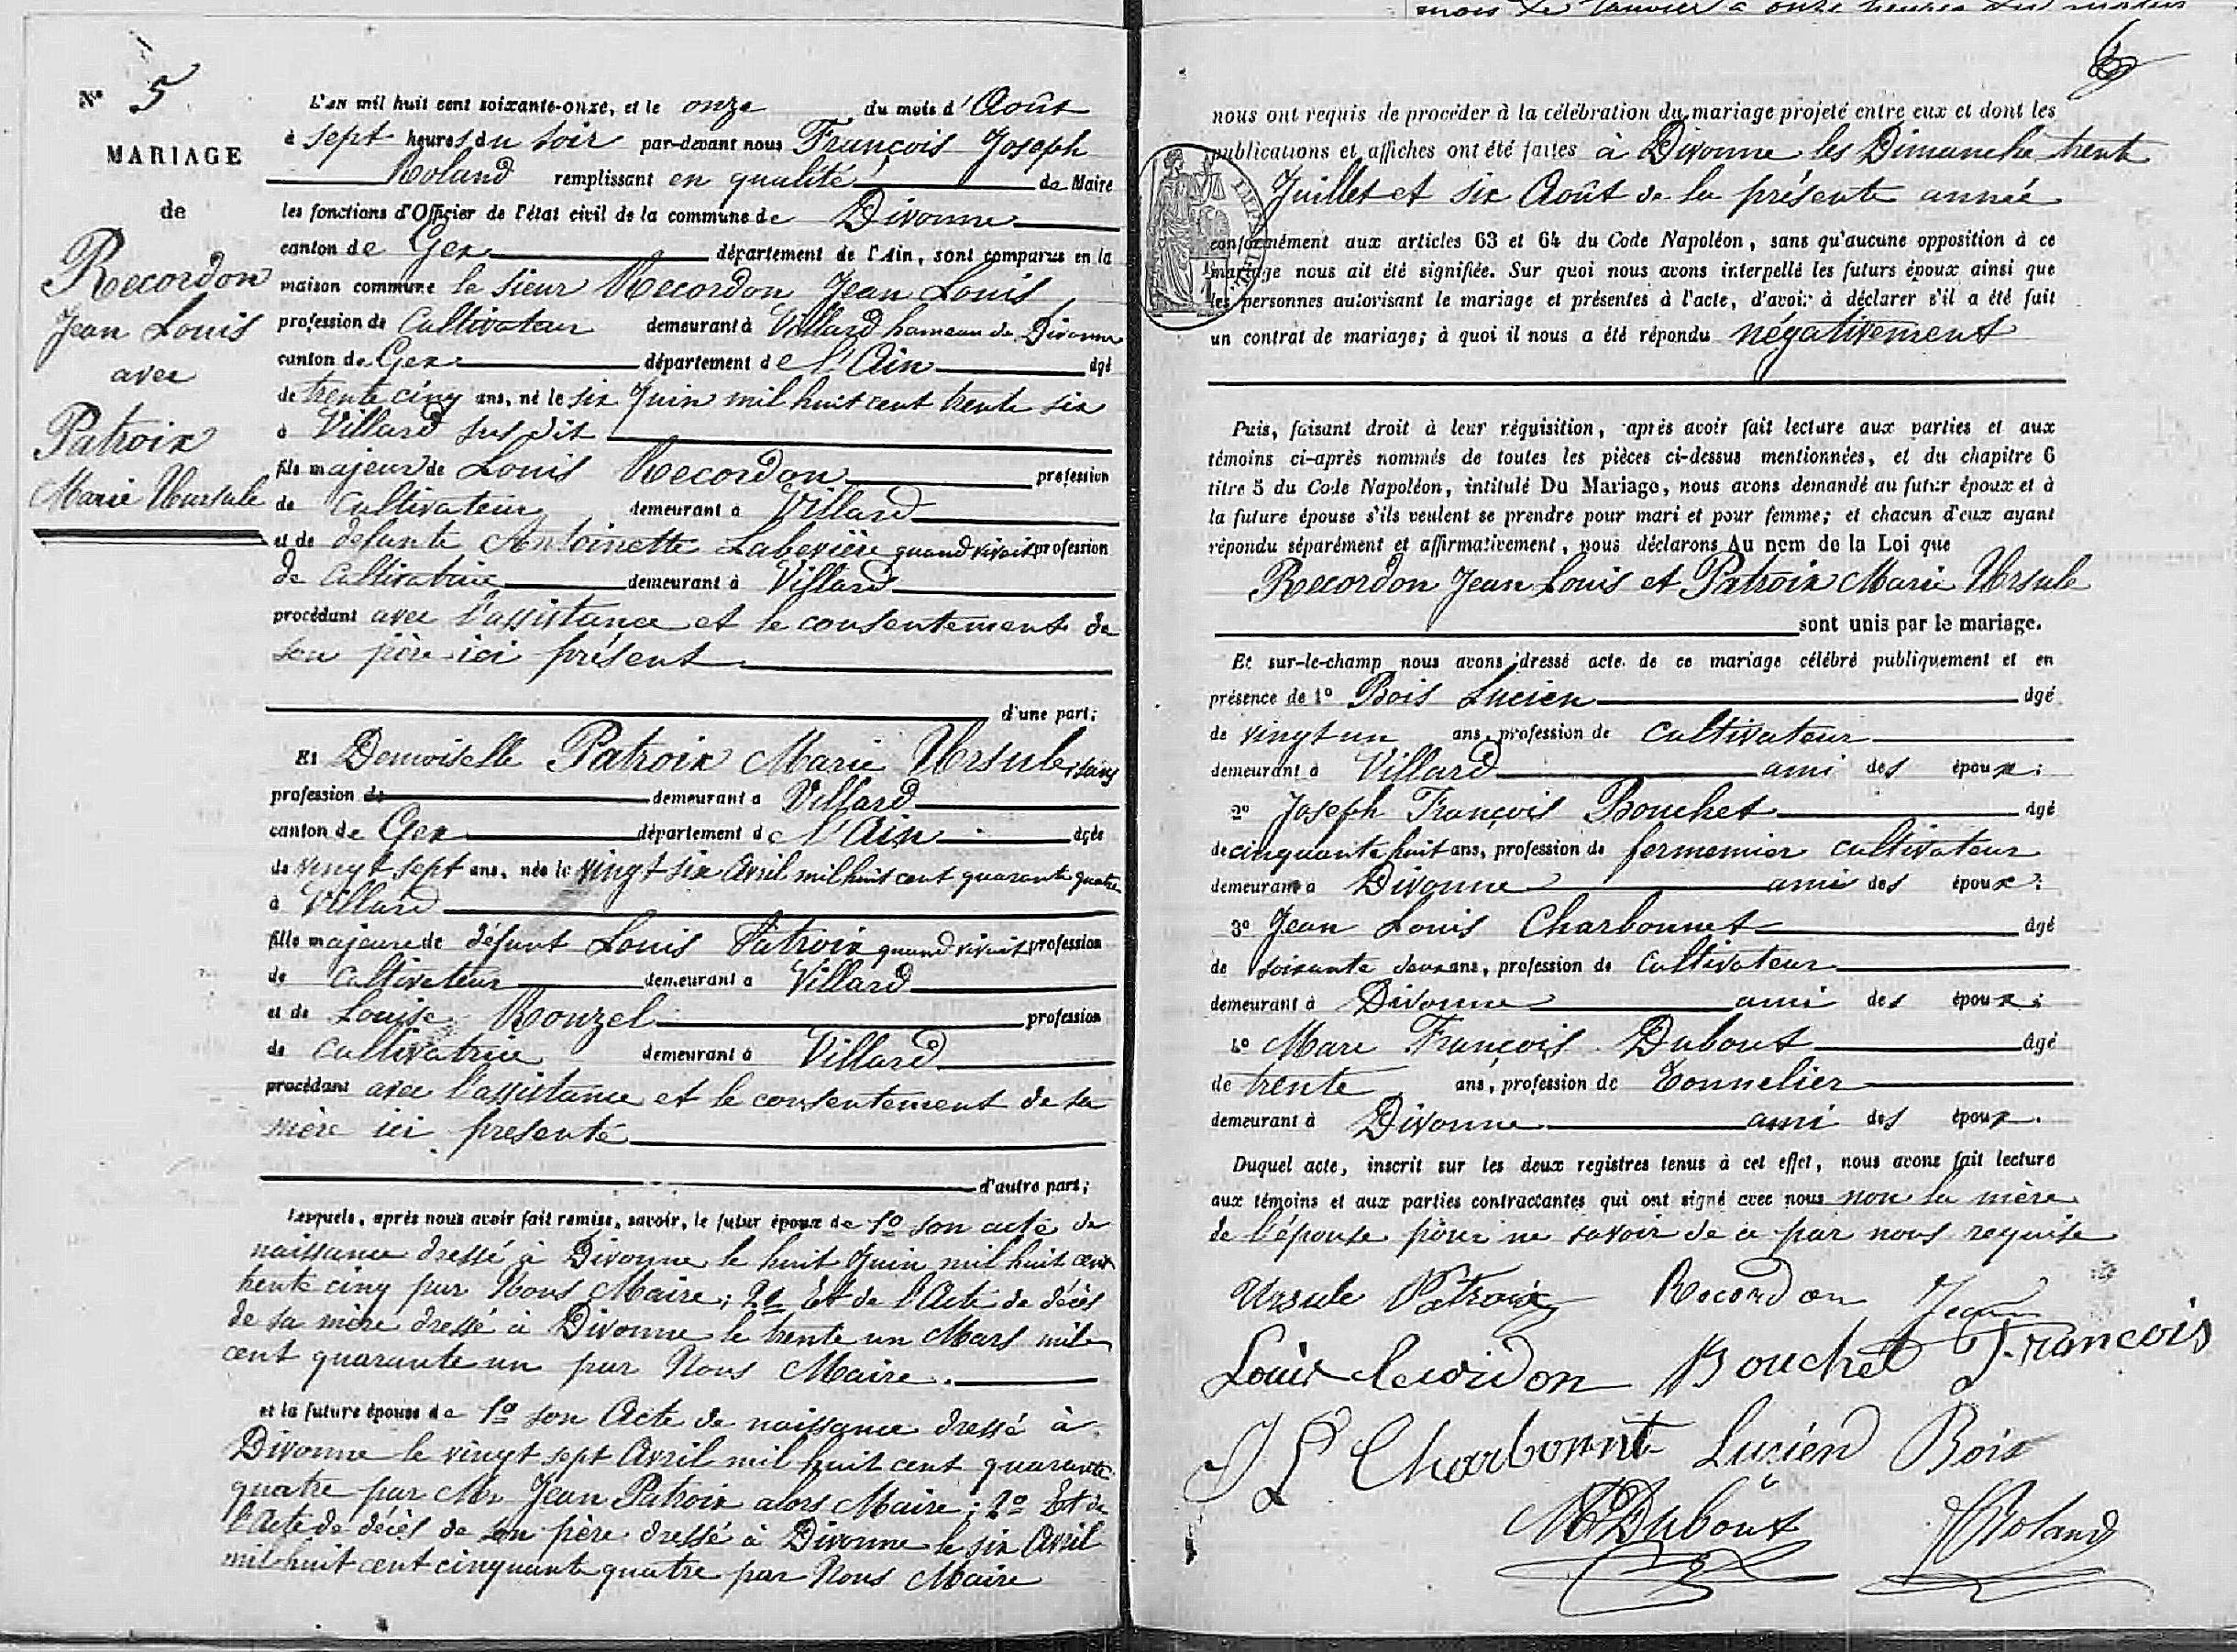 Nº 5
MARIAGE
de
Recordon
Jean Louis
avec
Patroix
Marie Hursule
L'an mil huit cent soixante-onze, et le onze du mois d'Août
à sept heures du soir par-devant nous François Joseph
Roland remplissant en qualité de Maire
les fonctions d'Officier de l'état civil de la commune de Divonne
canton de Gex département de l'Ain, sont comparus en la
maison commune le sieur Recordon Jean Louis
profession de Cultivateur demeurant à Villard hameau de Divonne
canton de Gex département de l'Ain âgé
de trente cinq ans, né le six Juin mil huit cent trente six
à Villard sus dit
fils majeur de Louis Recordon profession
de Cultivateur demeurant à Villard
et de défunte Antoinette Laberière quand vivait profession
de Cultivatrice demeurant à Villard
procédant avec l'assistance et le consentement de
son père ici présent
d'une part;
Et Demoiselle Patroix Marie Ursule sans
profession de demeurant à Villard
canton de Gex département de l'Ain âgée
de vingt sept ans, née le vingt six Avril mil huit cent quarante quatre
à Villard
fille majeure de défunt Louis Patroix quand vivait profession
de Cultivateur demeurant à Villard
et de Louise Rouzel profession
de Cultivatrice demeurant à Villard
procédant avec l'assistance et le consentement de sa
mère ici présente
d'autre part;
Lesquels, après nous avoir fait remise, savoir, le futur époux de 1º son acte de
naissance dressé à Divonne le huit Juin mil huit cent
trente cinq par Nous Maire; 2º Et de l'Acte de décès
de sa mère dressé à Divonne le trente un Mars mil
cent quarante un par Nous Maire.
et la future épouse de 1º son Acte de naissance dressé à
Divonne le vingt sept Avril mil huit cent quarante
quatre par Mr Jean Patroix alors Maire; 2º Et de
l'Acte de décès de son père dressé à Divonne le six Avril
mil huit cent cinquante quatre par Nous Maire
mois de Janvier à onze heures du matin
nous ont requis de procéder à la célébration du mariage projeté entre eux et dont les
publications et affiches ont été faites à Divonne les Dimanche trente
Juillet et six Août de la présente année
conformément aux articles 63 et 64 du Code Napoléon, sans qu'aucune opposition à ce
mariage nous ait été signifiée. Sur quoi nous avons interpellé les futurs époux ainsi que
les personnes autorisant le mariage et présentes à l'acte, d'avoir à déclarer s'il a été fait
un contrat de mariage; à quoi il nous a été répondu négativement
Puis, faisant droit à leur réquisition, après avoir fait lecture aux parties et aux
témoins ci-après nommés de toutes les pièces ci-dessus mentionnées, et du chapitre 6
titre 5 du Code Napoléon, intitulé Du Mariage, nous avons demandé au futur époux et à
la future épouse s'ils veulent se prendre pour mari et pour femme; et chacun d'eux ayant
répondu séparément et affirmativement, nous déclarons Au nom de la Loi que
Recordon Jean Louis et Patroix Marie Ursule
sont unis par le mariage.
Et sur-le-champ nous avons dressé acte de ce mariage célébré publiquement et en
présence de 1º Bois Lucien âgé
de vingt un ans, profession de Cultivateur
demeurant à Villard ami des époux;
2º Joseph François Bouchet âgé
de cinquante huit ans, profession de fermemier cultivateur
demeurant à Divonne ami des époux;
3º Jean Louis Charbonnet âgé
de soixante deux ans, profession de Cultivateur
demeurant à Divonne ami des époux;
4º Marc François Dubout âgé
de trente ans, profession de Tonnelier
demeurant à Divonne ami des époux.
Duquel acte, inscrit sur les deux registres tenus à cet effet, nous avons fait lecture
aux témoins et aux parties contractantes qui ont signé avec nous non la mère
de l'épouse pour ne savoir de ce par nous requise
Ursule Patroix Recordon Jean
Louis Recordon Bouchet François
J L Charbonnet Lucien Bois
MF Dubout Roland